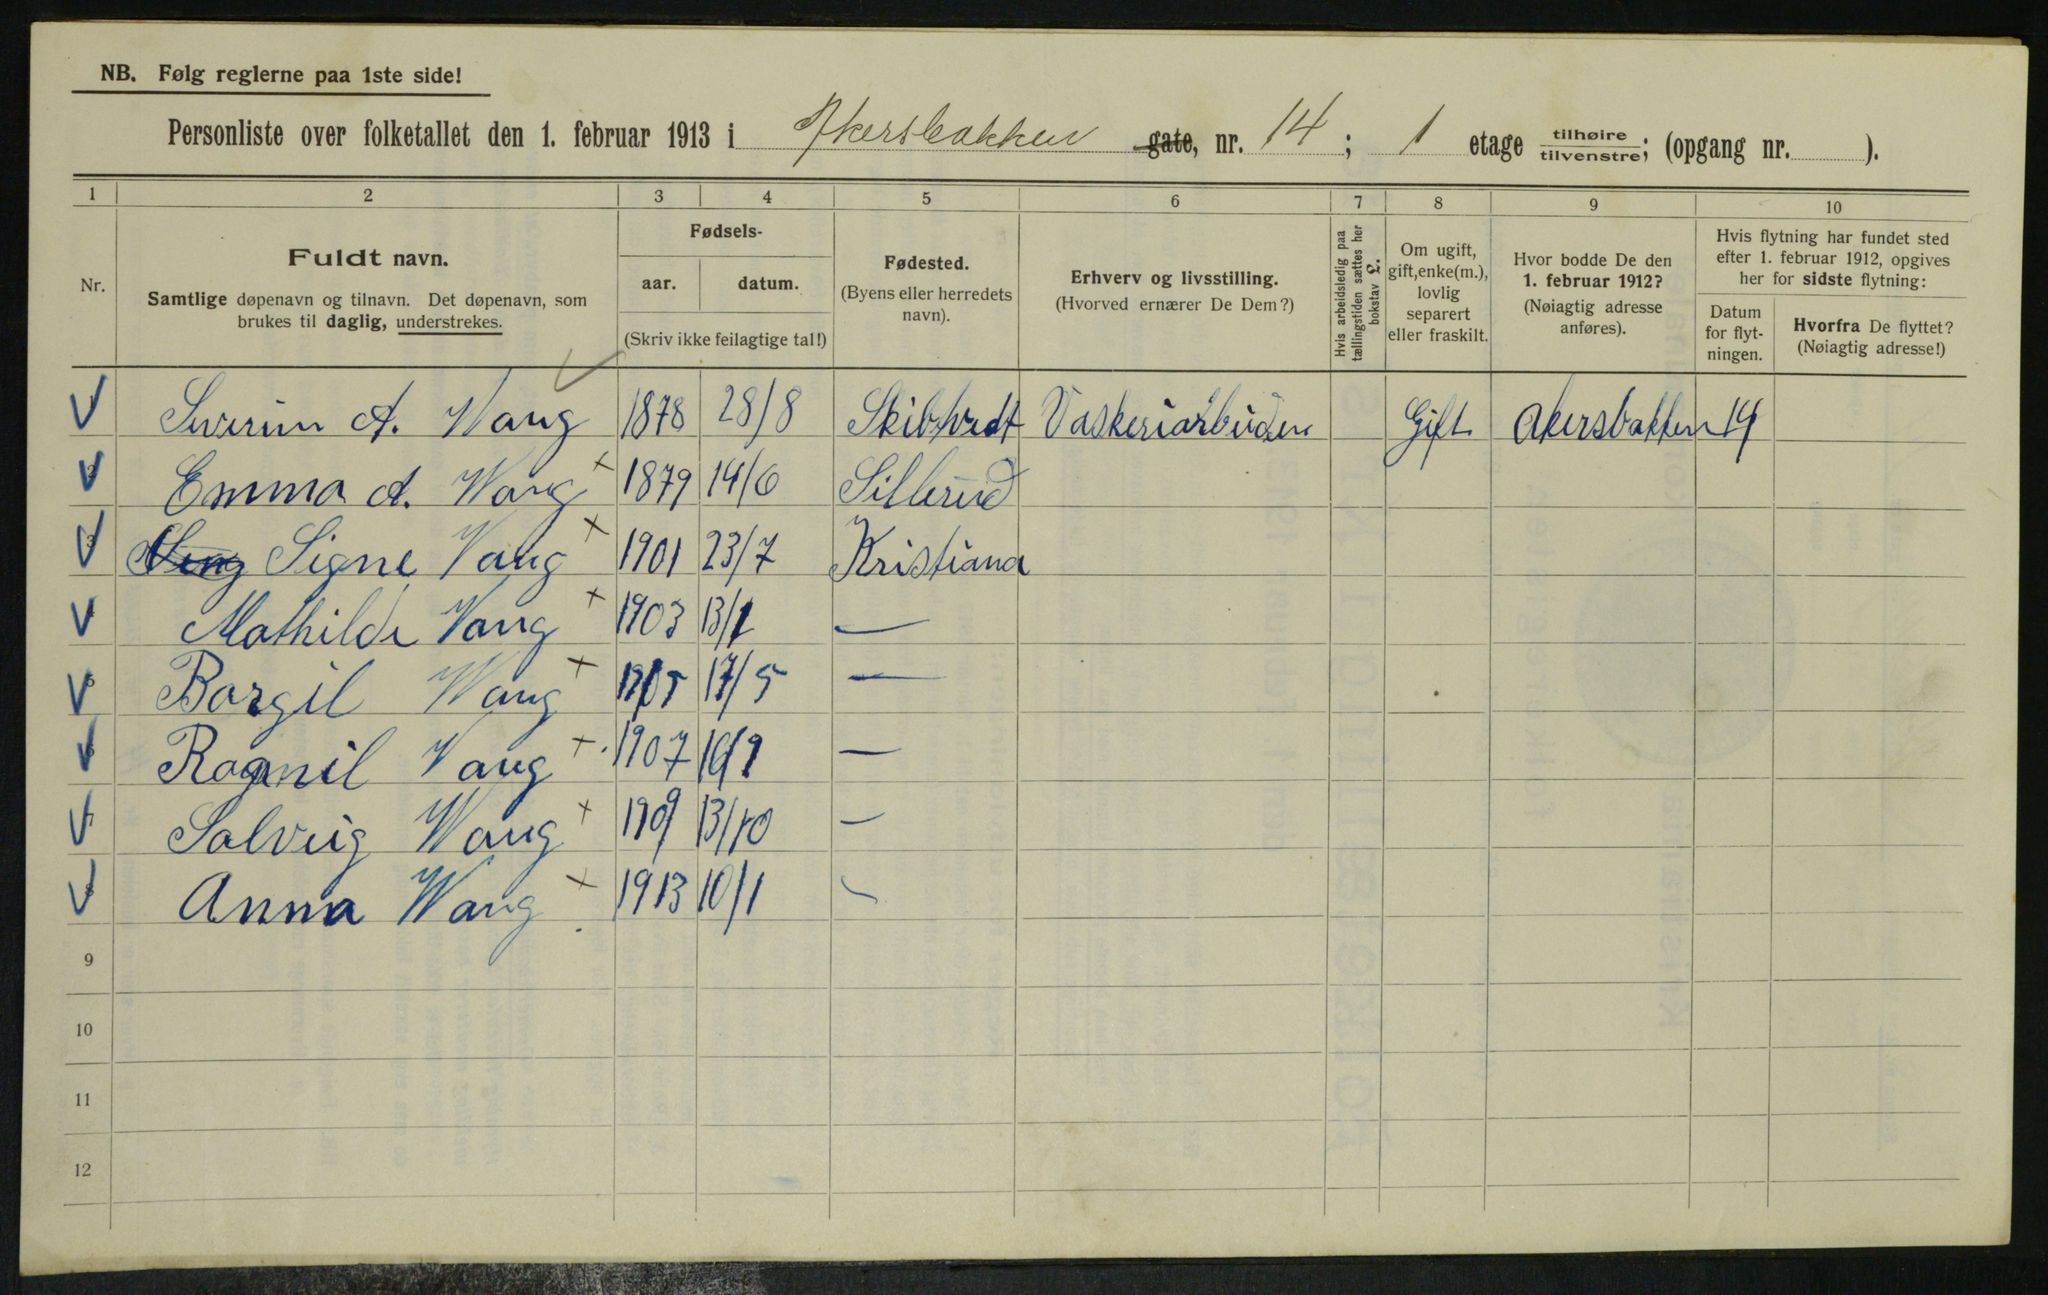 NB. Følg reglerne paa 1ste side!
Personliste over folketallet den 1. februar 1913 i Akersbakken gate, nr. 14; 1 etage tilhøire tilvenstre; (opgang nr. ).
1 2 3 4 5 6 7 8 9 10
Nr.
Fuldt navn.
Samtlige døpenavn og tilnavn. Det døpenavn, som
brukes til daglig, understrekes.
Fødsels-
aar. datum.
(Skriv ikke feilagtige tal!)
Fødested.
(Byens eller herredets
navn).
Erhverv og livsstilling.
(Hvorved ernærer De Dem?)
Hvis arbeidsledig paa
tællingstiden sættes her
bokstav L.
Om ugift,
gift, enke(m.),
lovlig
separert
eller fraskilt.
Hvor bodde De den
1. februar 1912?
(Nøiagtig adresse
anføres).
Hvis flytning har fundet sted
efter 1. februar 1912, opgives
her for sidste flytning:
Datum
for flyt-
ningen.
Hvorfra De flyttet?
(Nøiagtig adresse!)
1 Siverin A. Wang 1878 28/8 Gift Akersbakken 14
2 Emma A. Wang 1879 14/6 Sillerud
3 Signe Wang 1901 23/7 Kristiana
4 Mathilde Wang 1903 13/1 —
5 Borgil Wang 1905 17/5 —
6 Ragnil Wang 1907 —
7 Solveig Wang 1909 13/10 —
8 Anna Wang 1913 10/1 —
9
10
11
12